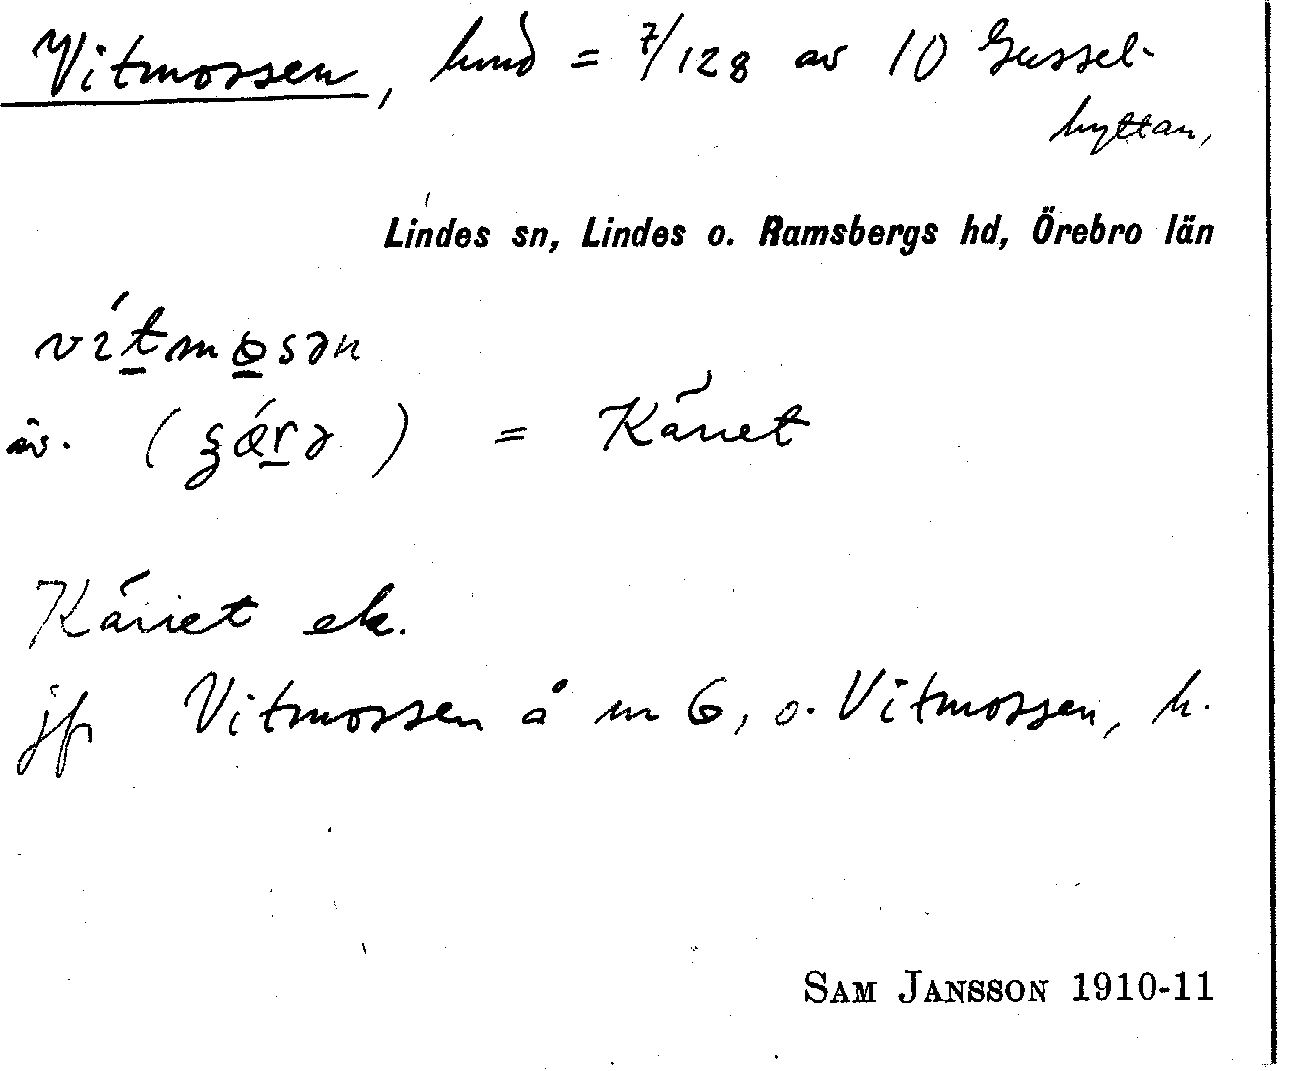 Vitmossen, hmd = 7/128 av 10 Gussel-
hyttan,
Lindes sn, Lindes o. Ramsbergs hd, Örebro län
vítmɵsən
äv. ( ) = Kärret
Kärret ek.
jfr Vitmossen å nr 6, o. Vitmossen, h.
SAM JANSSON 1910-11